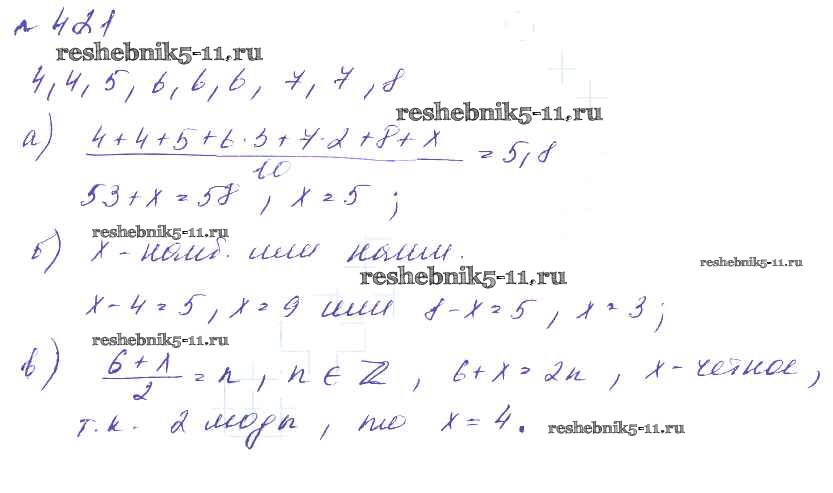 № 421
reshebnik5-11.ru
4, 4, 5, 6, 6, 6, 7, 7, 8
reshebnik5-11.ru
а) (4+4+5+6·3+7·2+8+x)/10 = 5,8
53+x=58, x=5;
reshebnik5-11.ru
б) x - наиб. или наим.
reshebnik5-11.ru
reshebnik5-11.ru
x-4=5, x=9 или 8-x=5, x=3;
reshebnik5-11.ru
в) (6+x)/2 = n, n ∈ Z, 6+x=2n, x - четное,
т.к. 2 моды, то x=4.
reshebnik5-11.ru